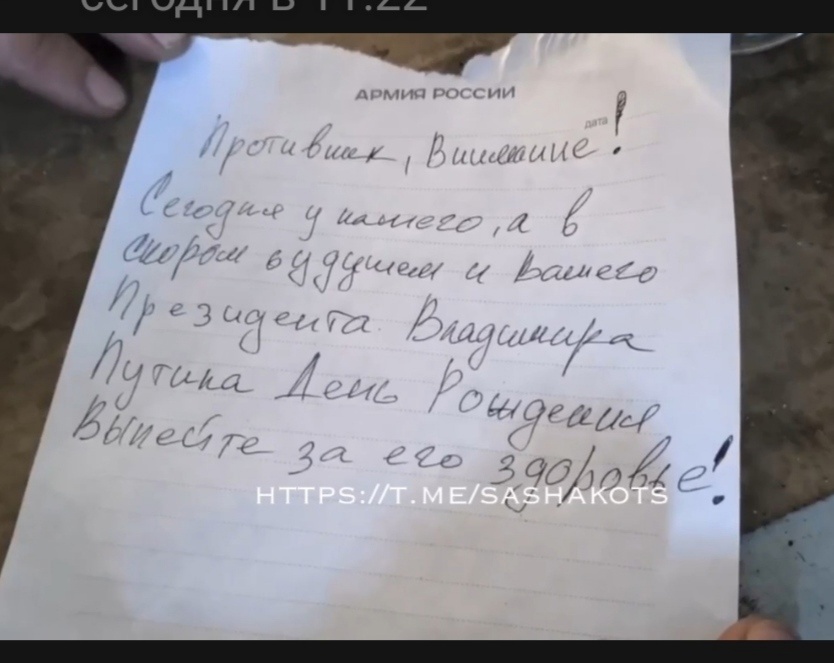 сегодня в 11:22
АРМИЯ РОССИИ
дата
Противник, Внимание!
Сегодня у нашего, а в
скором будущем и Вашего
Президента Владимира
Путина День Рождения
Выпейте за его здоровье!
HTTPS://T.ME/SASHAKOTS